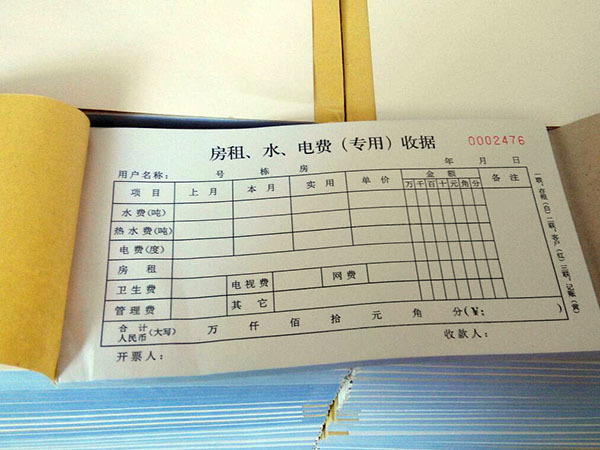 房租、水、电费（专用）收据 0002476
用户名称： 号 栋 房 年 月 日
项 目 上 月 本 月 实 用 单 价 金 额 备 注
万 千 百 十 元 角 分
水 费(吨)
热水费(吨)
电 费(度)
房 租
卫生费 电视费 网 费
管理费 其 它
合 计
人民币 (大写) 万 仟 佰 拾 元 角 分(￥: )
开票人： 收款人：
一联，存根（白）二联，客户（红）三联，记账（黄）